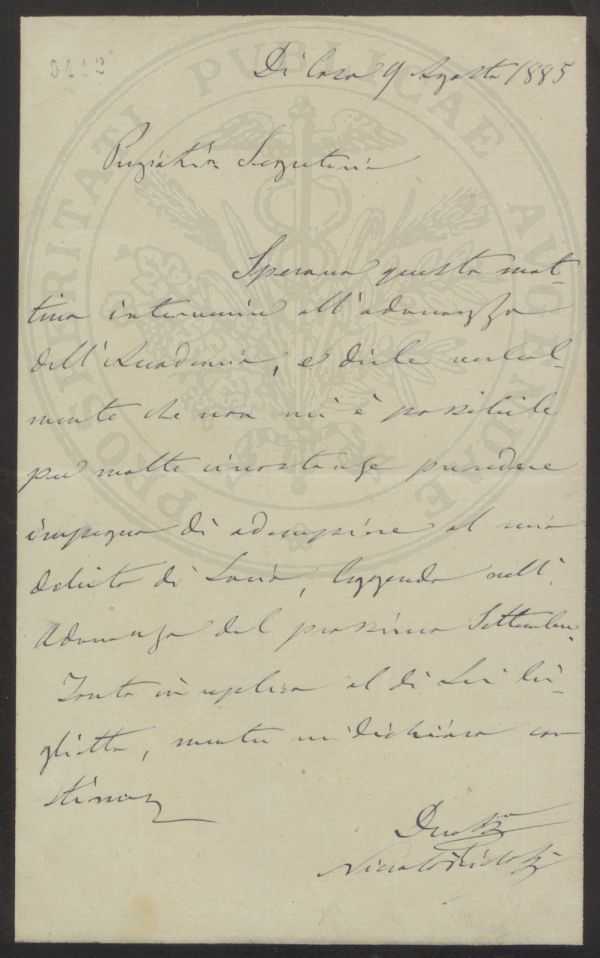 0412
Di Casa 9 Agosto 1885
Pregiatis. Segretario
Sperava questa mat-
tina intervenire all'adunanza
dell'Accademia, e dirle verbal-
mente che non mi è possibile
per molte circostanze prendere
impegno di adempiere al mio
debito di Socio, leggendo nell'
Adunanza del prossimo Settembre.
Tanto in replica al di Lei bi-
glietto, mentre mi dichiaro con
stima
Devotis.
PROSPERITATI PUBLICAE AUGENDAE